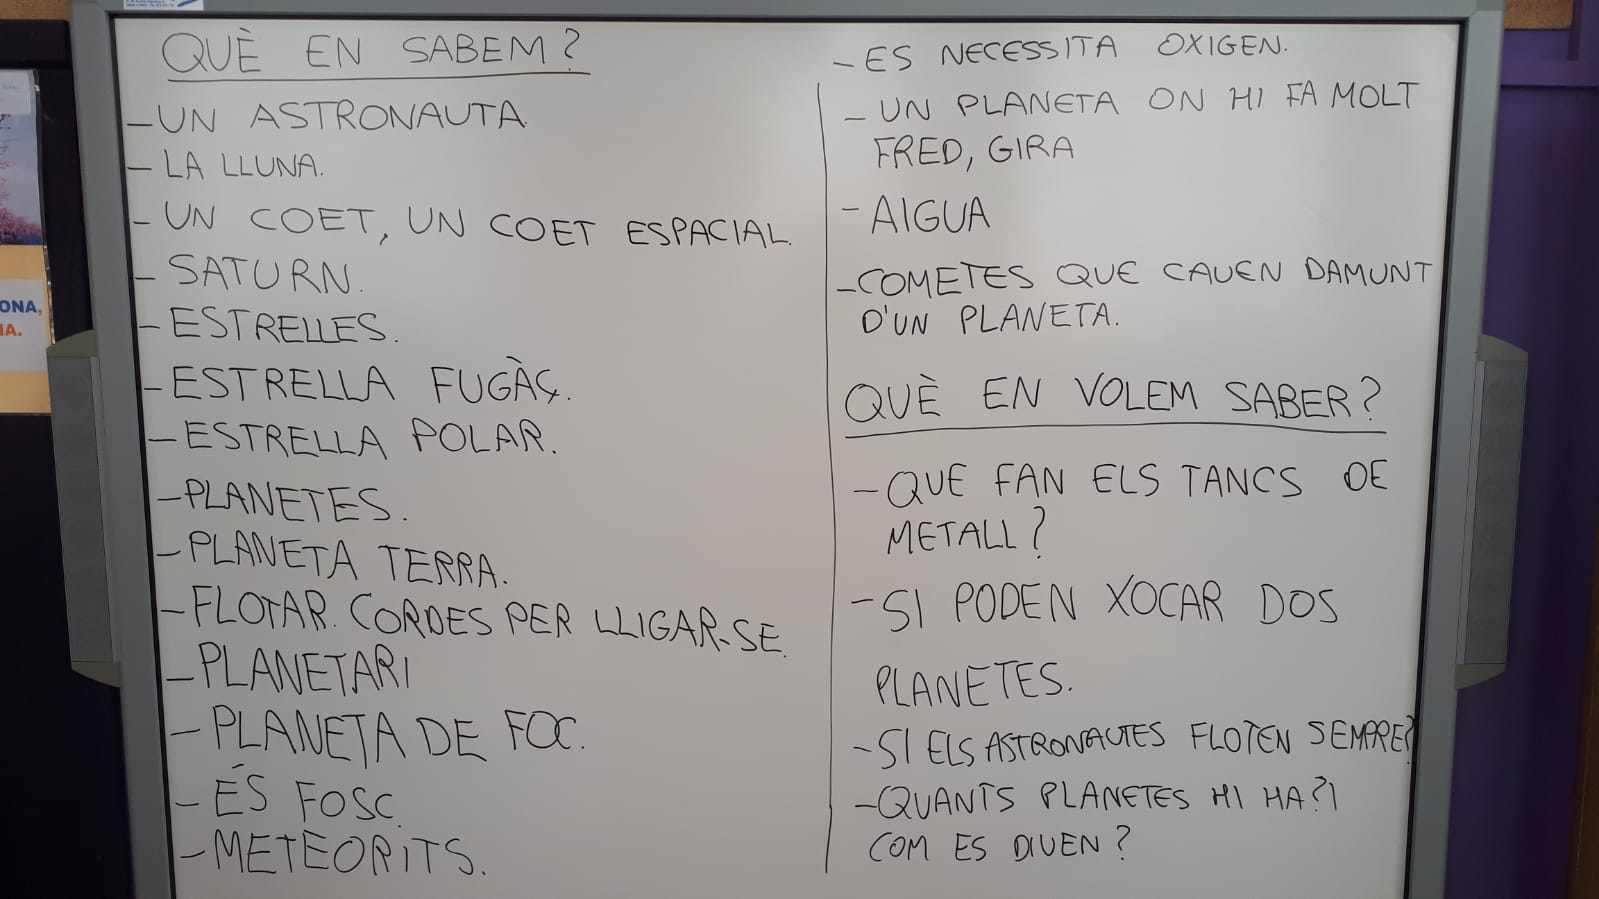 QUÈ EN SABEM?
-UN ASTRONAUTA.
- LA LLUNA.
- UN COET, UN COET ESPACIAL.
- SATURN.
- ESTRELLES.
- ESTRELLA FUGÀÇ.
- ESTRELLA POLAR.
- PLANETES.
- PLANETA TERRA.
- FLOTAR. CORDES PER LLIGAR-SE.
- PLANETARI
- PLANETA DE FOC.
- ÉS FOSC.
- METEORITS.
- ES NECESSITA OXIGEN.
- UN PLANETA ON HI FA MOLT
FRED, GIRA
- AIGUA
- COMETES QUE CAUEN DAMUNT
D'UN PLANETA.
QUÈ EN VOLEM SABER?
- QUE FAN ELS TANCS DE
METALL?
- SI PODEN XOCAR DOS
PLANETES.
- SI ELS ASTRONAUTES FLOTEN SEMPRE?
- QUANTS PLANETES HI HA? I
COM ES DIUEN?
ONA,
IA.